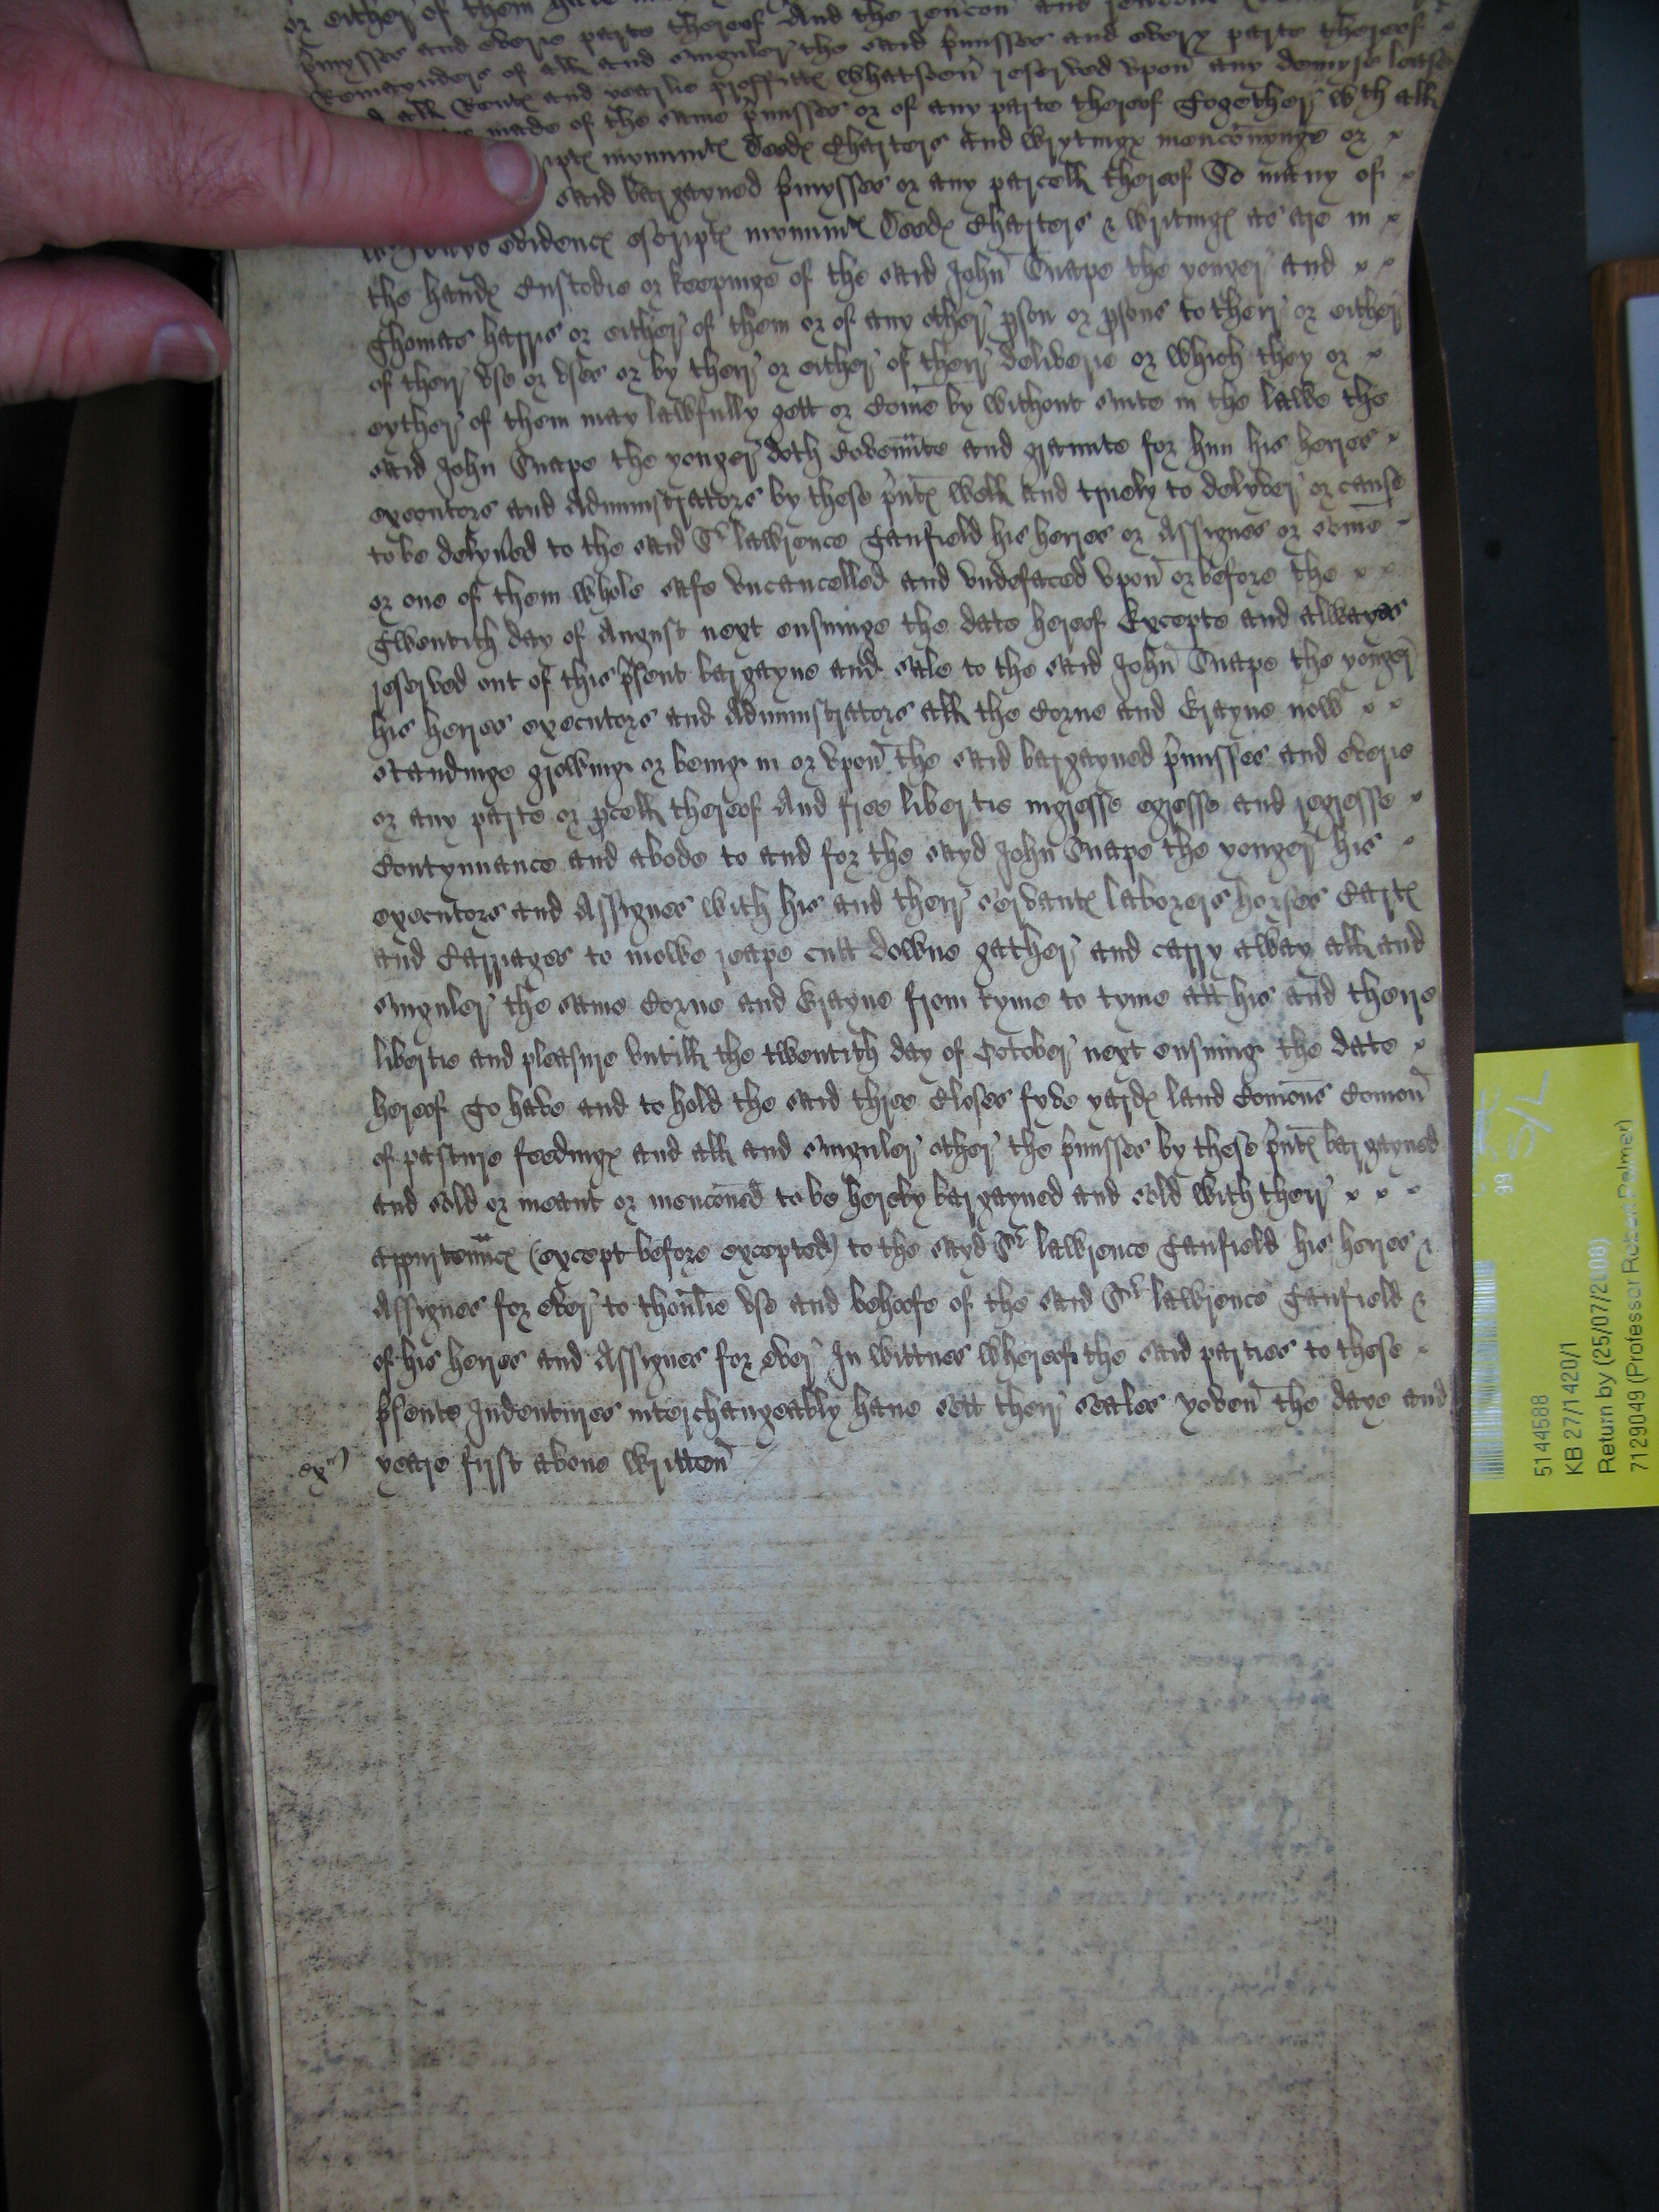 or either of them
p̄mysses and everie parte thereof And the rev̄con and
Remaynders of all and singuler the said p̄misses and every parte thereof
all Rentes and yearlie proffittes whatsoev̄ reserved vpon any demyse lease
made of the same p̄misses or of any parte thereof Together wth all
mynimtes Deedes Charters and wrytinges menc̄onynge or
said bargayned p̄mysses or any parcell thereof So many of
evidences escriptes mynimtes Deedes Charters & writinges as are in
the handes Custodie or keepinge of the said John Snape the yonger and
Thomas harris or either of them or of any other p̄son or p̄sons to their or either
of their vse or vses or by their or either of their deliverie or which they or
eyther of them may lawfully gett or Come by without suite in the lawe the
said John Snape the yonger doth Coven̄nte and graunte for him his heires
executors and Administrators by these p̄ntes well and truely to delyver or cause
to be delyūed to the said Sr lawrence Tanfield his heires or Assignes or some
or one of them whole safe vncancelled and vndefaced vpon or before the
Twentith day of August next ensuinge the date hereof Excepte and alwayes
reserved out of this p̄sent bargayne and sale to the said John Snape the yonger
his heires executors and Administrators all the Corne and Grayne now
standinge growing or being in or vpon the said bargayned p̄misses and everie
or any parte or p̄cell thereof And free libertie ingresse egresse and regresse
Contynuance and abode to and for the sayd John Snape the yonger his
executors and Assignes with his and their servantes laborers horses Cartes
and Carriages to mowe reape cutt downe gather and carry away all and
singuler the same Corne and Grayne from tyme to tyme att his and theire
libertie and pleasure vntill the twentith day of October next ensuing the date
hereof To have and to hold the said three Closes fyve yardes land Com̄ons Com̄on
of pasture feedinges and all and singuler other the p̄misses by these p̄ntes bargayned
and sold or meant or menc̄oned to be hereby bargayned and sold with their
appurten̄nces (except before excepted) to the sayd Sr lawrence Tanfield his heires &
Assignes for ever to thonlie vse and behoofe of the said Sr lawrence Tanfield &
of his heires and Assignes for ever In wittnes whereof the said parties to these
p̄sente Indentures interchangeably haue sett their seales yeven the daye and
yeare first aboue written
exr
5144588
KB 27/1420/1
Return by (25/07/2008)
7129049 (Professor Robert Palmer)
99